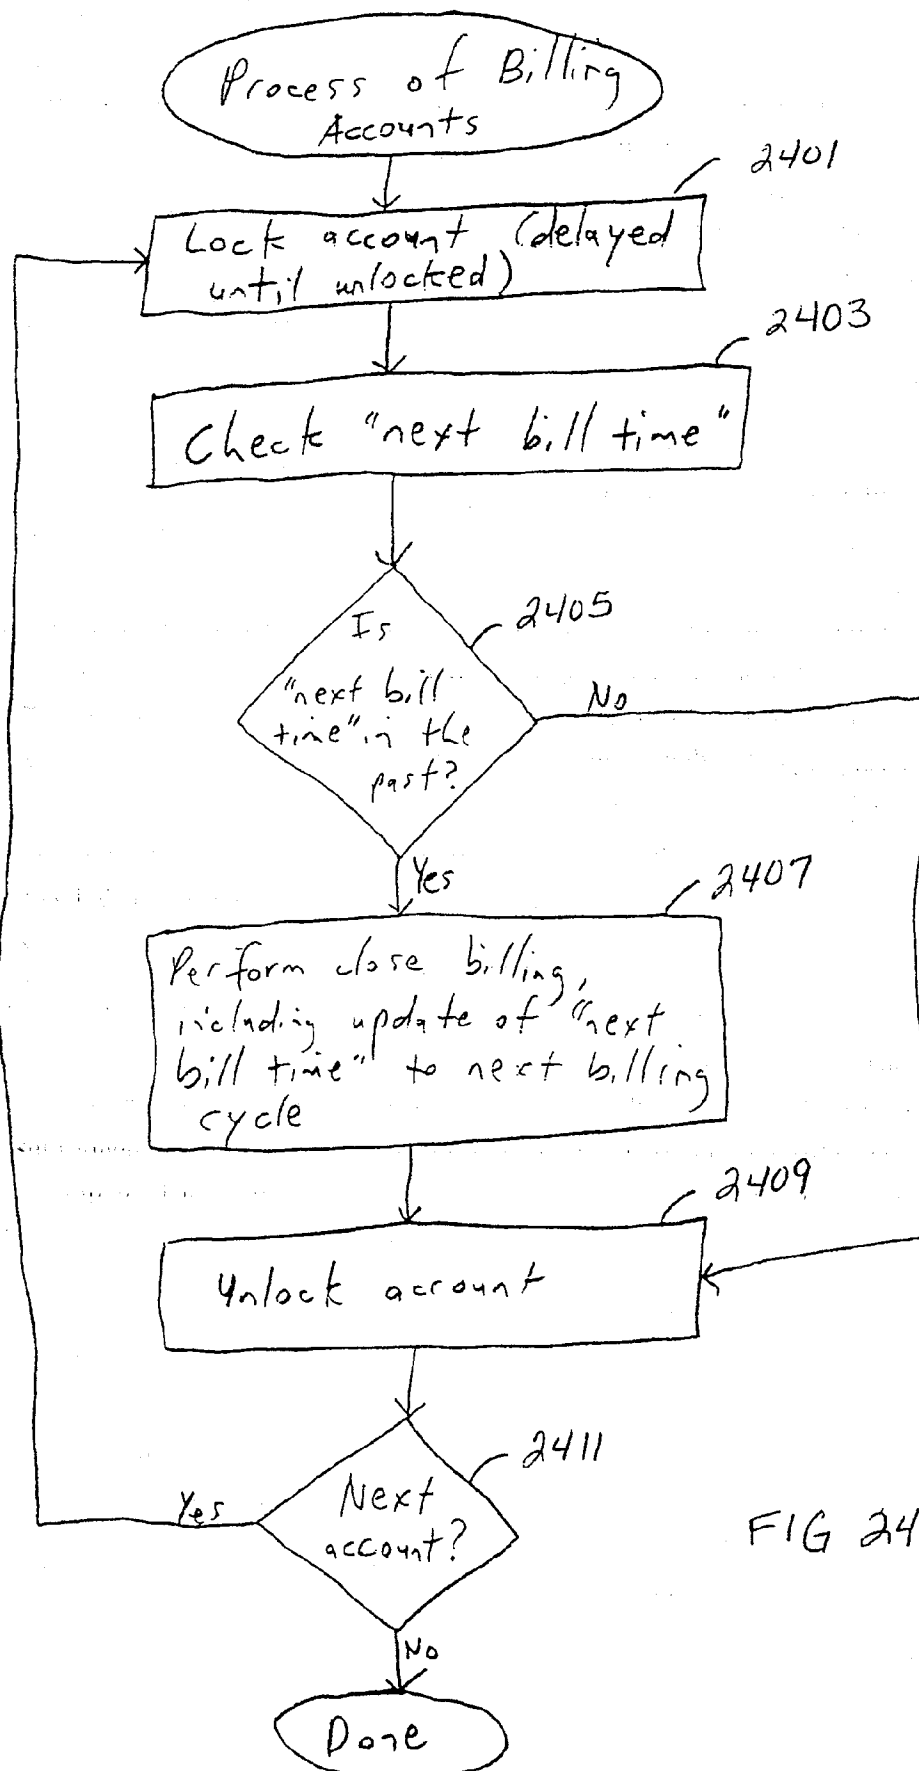 Process of Billing
Accounts
2401
Lock account (delayed
until unlocked)
2403
Check "next bill time"
2405
Is
"next bill
time" in the
past?
No
Yes
2407
Perform close billing,
including update of "next
bill time" to next billing
cycle
2409
Unlock account
2411
Next
account?
Yes
No
FIG 24
Done